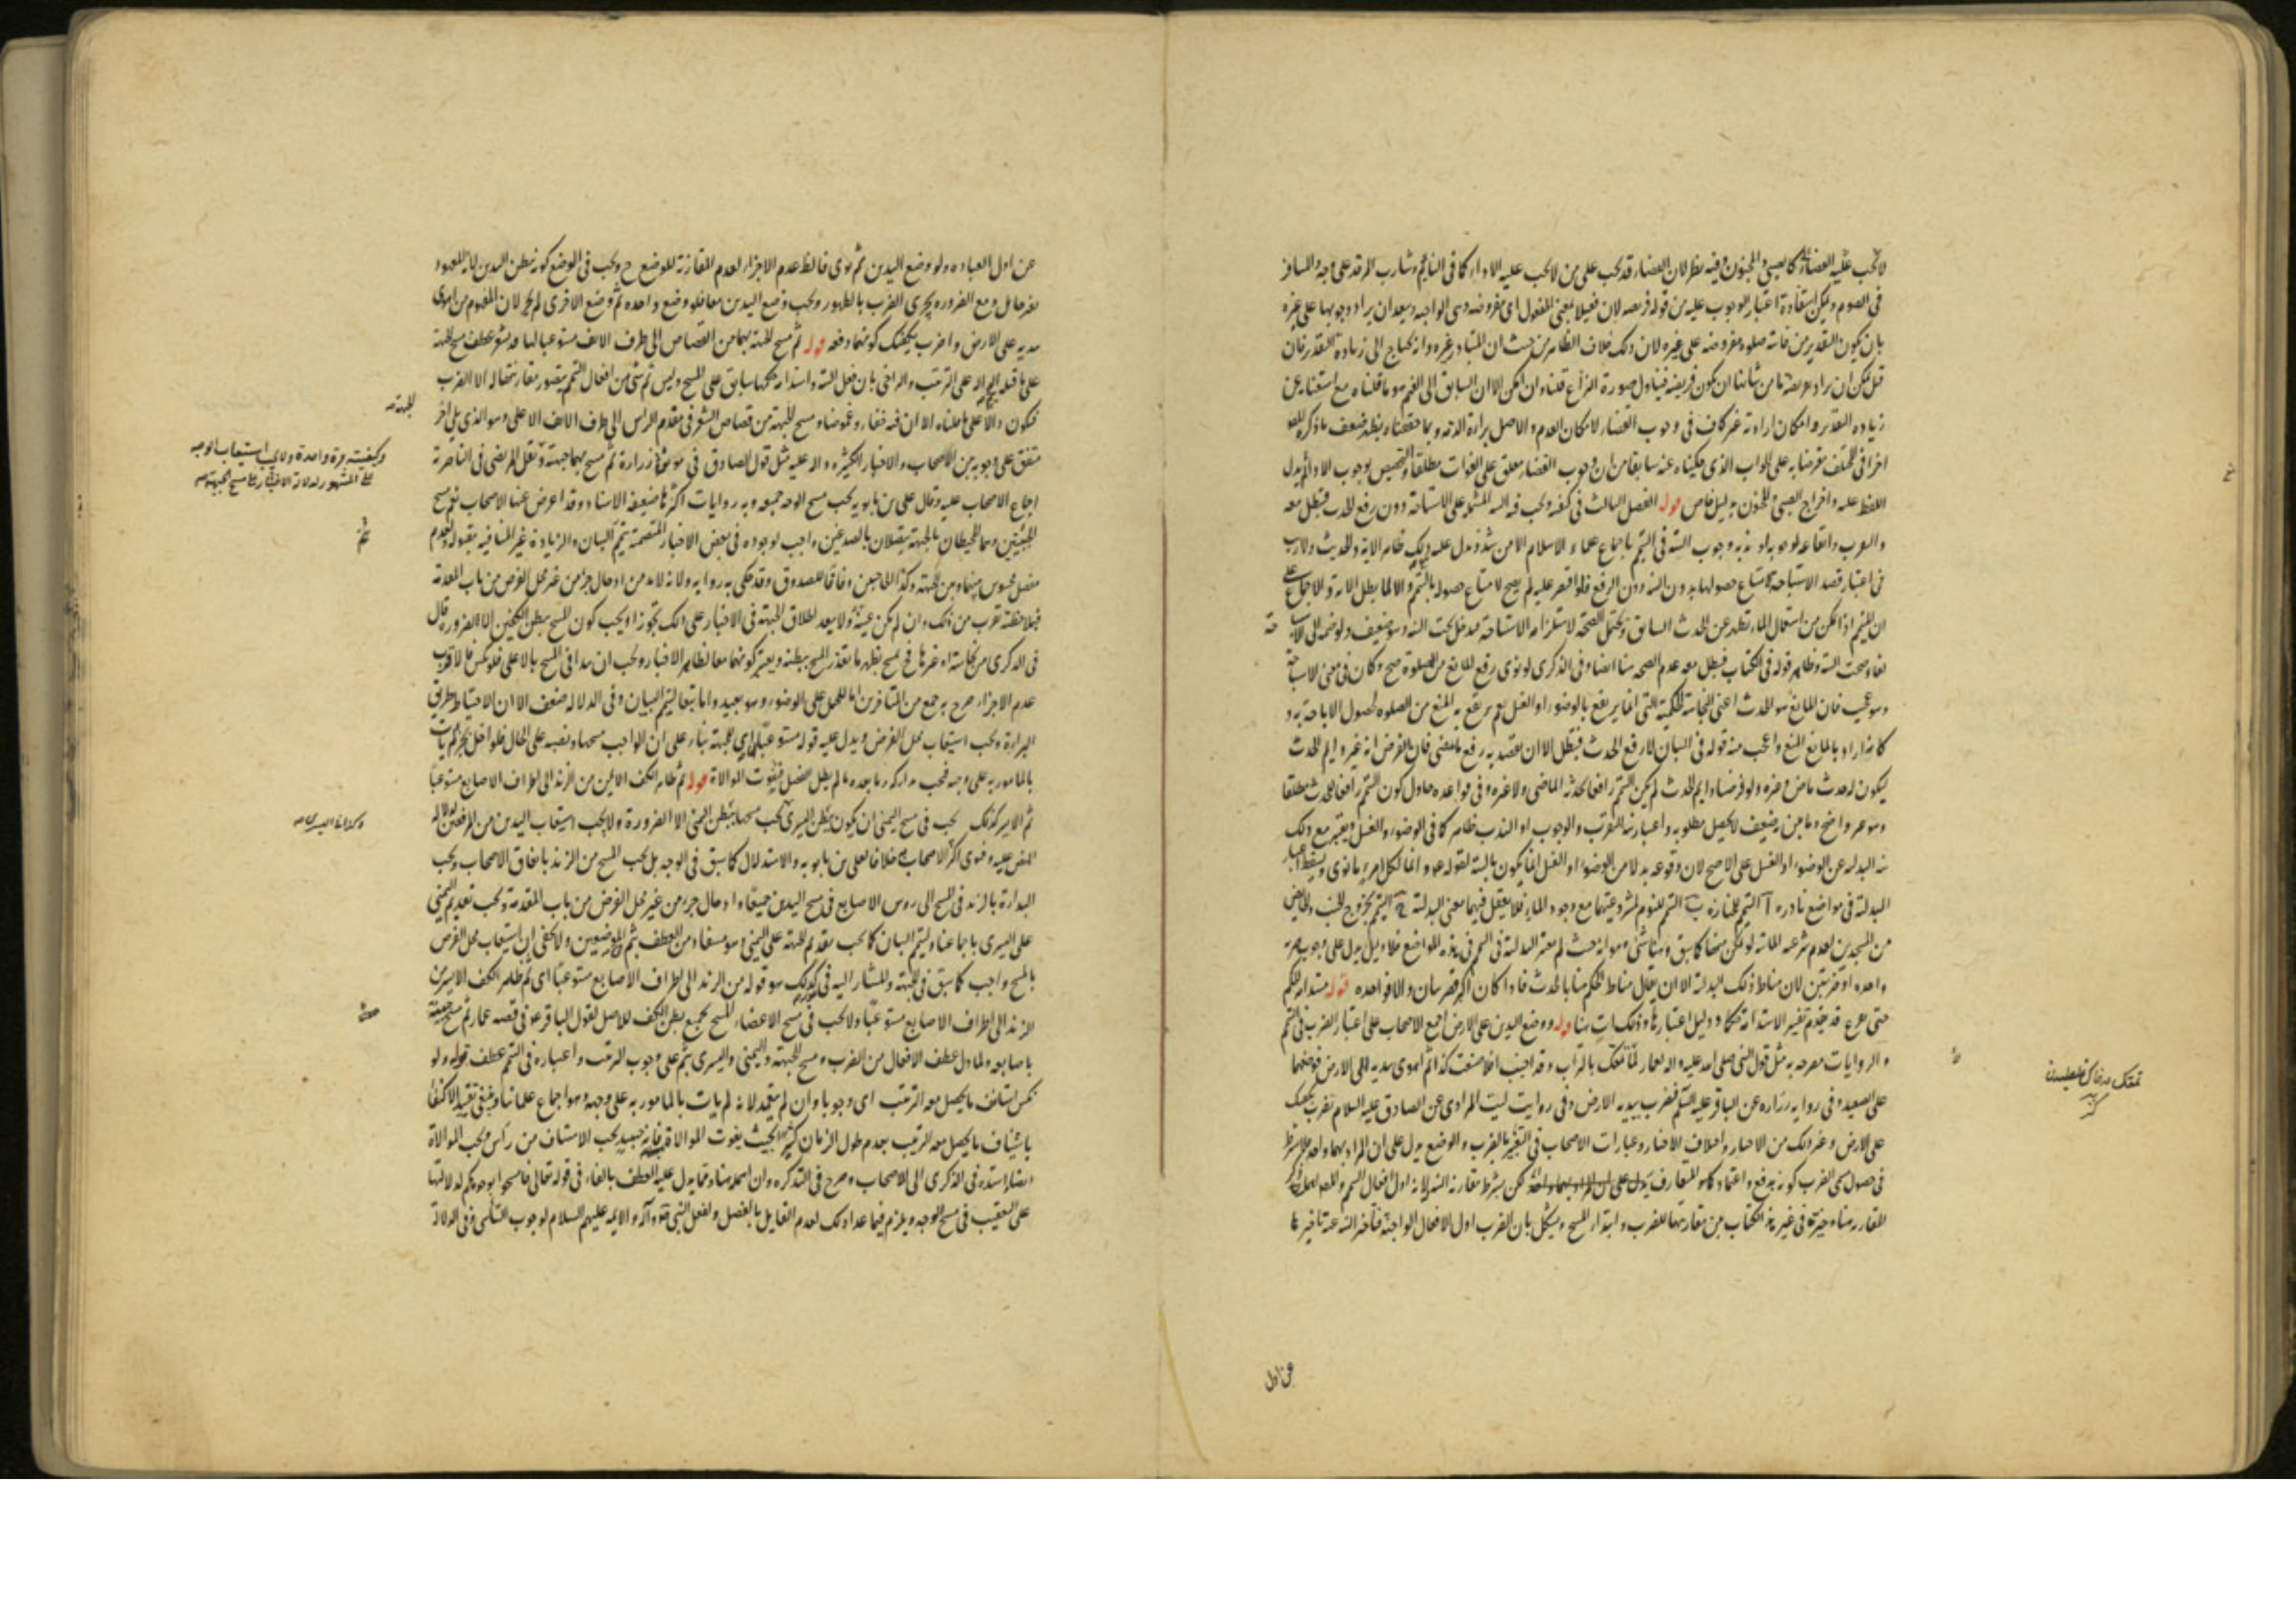 لا يجب عليه القضاء كالصبي والمجنون وفيه نظر لان القضاء قد يجب على من لا يجب عليه الاداء كما في النايم وشارب المرقد على وجه والمسافر
في الصوم ويمكن استفادة اعتبار الوجوب عليه من قوله فريضة لان فعيلا بمعنى المفعول اى مفروضة وهى الواجبة ويبعد ان يراد وجوبها على غيره
بان يكون التقدير من فاتته صلوة مفروضة على غيره لان ذلك خلاف الظاهر من حيث ان المتبادر غيره وانه يحتاج الى زيادة التقدير فان
قيل يمكن ان يراد فريضة ما من شانها ان يكون فريضة فيتناول صورة النزاع قلنا وان امكن الا ان السابق الى الفهم هو ما قلناه مع استغنائه عن
زيادة التقدير وامكان ارادته غير كاف في وجوب القضاء لامكان العدم والاصل براءة الذمة وبما حققناه يظهر ضعف ما ذكره
اخرا في المختلف معرضا به على الجواب الذى حكيناه عنه سابقا من ان وجوب القضاء معلق على الفوات مطلقا والتخصيص بوجوب الاداء لم يدل
اللفظ عليه واخراج الصبي والمجنون بدليل خاص قوله الفصل الثالث في كيفيته ويجب فيه النية المشتملة على الاستباحة دون رفع الحدث فيبطل معه
والتقرب وايقاعه لوجوبه او ندبه وجوب النية في التيمم باجماع علماء الاسلام الا من شذ ويدل عليه ظاهر الاية والحديث ولا ريب
في اعتبار قصد الاستباحة لامتناع حصولها بدون النية دون الرفع فلو اقتصر عليه لم يصح لامتناع حصوله بالتيمم والا لما بطل الا به والاجماع على
ان المتيمم اذا تمكن من استعمال الماء تطهر عن الحدث السابق ويحتمل الصحة لاستلزامه الاستباحة فيدخل تحت النية وهو ضعيف ولو ضمه الى الاستباحة
لغا وصحت النية وظاهر قوله في الكتاب فيبطل معه عدم الصحة هنا ايضا وفي الذكرى لو نوى رفع المانع من الصلوة صح وكان في معنى الاستباحة
وهو عجيب فان المانع هو الحدث اعنى النجاسة الحكمية التي انما يرتفع بالوضوء او الغسل نعم يرتفع به المنع من الصلوة لحصول الاباحة به و
كانه اراد بالمانع المنع واعجب منه قوله في البيان لا رفع الحدث فيبطل الا ان يقصد به رفع ما مضى فان الفرض انه غير دايم الحدث
ليكون له حدث ماض وغيره ولو فرضناه دايم الحدث لم يكن التيمم رافعا لحدثه الماضي ولا غيره وفي قواعده حاول كون التيمم رافعا للحدث مطلقا
وهو غير واضح وما بين به ضعيف لا يحصل مطلوبه واعتبار نية التقرب والوجوب او الندب ظاهر كما في الوضوء والغسل ويعتبر مع ذلك
نية البدلية عن الوضوء او الغسل على الاصح لان وقوعه بدلا من الوضوء او الغسل انما يكون بالنية لقوله عم وانما لكل امرئ ما نوى ويسقط اعتبار
البدلية في مواضع نادرة آ التيمم للجنازة ب التيمم للنوم لمشروعيتهما مع وجود الماء فلا يعقل فيهما معنى البدلية ج التيمم لخروج الجنب والحايض
من المسجدين لعدم شرعية المائية لو تمكن منها كما سبق وهنا شئ وهو انه حيث لم يعتبر البدلية في التيمم في هذه المواضع فلا دليل يدل على وجوب ضربة
واحدة او ضربتين لان مناط ذلك البدلية الا ان يقال مناط الحكم هنا بالحدث فاذا كان اكبر فضربتان والا فواحدة قوله مستدامة الحكم
حتى يفرغ قد تقدم تفسير الاستدامة حكما ودليل اعتبارها وذلك آت هنا قوله ووضع اليدين على الارض اجمع الاصحاب على اعتبار الضرب في التيمم
والروايات مصرحة به مثل قول النبي صلى الله عليه واله لعمار لما تمعك بالتراب وقد اجنب افلا صنعت كذا ثم اهوى بيديه الى الارض فوضعهما
على الصعيد وفي رواية زرارة عن الباقر عليه السلم فضرب بيديه الارض وفي رواية ليث المرادى عن الصادق عليه السلام تضرب بكفيك
على الارض وغير ذلك من الاخبار واختلاف الاخبار وعبارات الاصحاب في التعبير بالضرب والوضع يدل على ان المراد بهما واحد فلا يشترط
في حصول مسمى الضرب كونه بدفع واعتماد كما هو المتعارف يدل على ان المراد بهما واحد لكن يشترط مقارنة النية لانه اول افعال التيمم
المقارنة هنا وخيرته في غير هذا الكتاب بين مقارنتها للضرب وابتداء المسح ويشكل بان الضرب اول الافعال الواجبة فتاخير النية عنه تاخير لها
تمعك
عن اول
عن اول العبادة ولو وضع اليدين ثم نوى فالظ عدم الاجزاء لعدم المقارنة للوضع ح ويجب في الوضع كونه ببطن اليدين لانه المعهود
بغير حائل ومع الضرورة يجزى الضرب بالظهور ويجب وضع اليدين معا فلو وضع واحدة ثم وضع الاخرى لم يجز لان المفهوم من اهوى
بيديه على الارض واضرب بكفيك كونهما دفعة قوله ثم مسح الجبهة بهما من القصاص الى طرف الانف مستوعبا لها قد يشعر عطف مسح الجبهة
على ما قبله بثم الدالة على الترتيب والتراخى بان فعل النية واستدامة حكمها سابق على المسح وليس ثم شئ من افعال التيمم يتصور مقارنتها له الا الضرب
فيكون دالا على ما قلناه الا ان فيه خفاء وغموضا ومسح الجبهة من قصاص الشعر في مقدم الراس الى طرف الانف الاعلى وهو الذى يلي اخر
متفق على وجوبه بين الاصحاب والاخبار الكثيرة دالة عليه مثل قول الصادق في موثقة زرارة ثم مسح بهما جبهته ونقل المرتضى في الناصرية
اجماع الاصحاب عليه وقال على بن بابويه يجب مسح الوجه جميعه وبه روايات اكثرها ضعيفة الاسناد وقد اعرض عنها الاصحاب نعم مسح
الجبينين وهما المحيطان بالجبهة يتصلان بالصدغين واجب لوجوده في بعض الاخبار المتضمنة تيمم البيان والزيادة غير المنافية مقبولة ولعدم
مفصل محسوس بينهما وبين الجبهة وكذا الحاجبين وفاقا للصدوق وقد حكى به رواية ولانه لابد من ادخال جزء من غير محل الفرض من باب المقدمة
فملاحظته تقرب من ذلك وان لم يكن عينه ولا يبعد اطلاق الجبهة في الاخبار على ذلك تجوزا ويجب كون المسح ببطن الكفين الا لضرورة قال
في الذكرى من نجاسة او غيرها فح يمسح بظهر ما يتعذر المسح ببطنه ويعتبر كونهما معا لظاهر الاخبار ويجب ان يبدا في المسح بالاعلى فلو نكس فالاقرب
عدم الاجزاء صرح به جمع من المتاخرين اما للحمل على الوضوء وهو بعيد واما تبعا لتيمم البيان وفي الدلالة ضعف الا ان الاحتياط طريق
البراءة ويجب استيعاب محل الفرض ويدل عليه قوله مستوعبا لها اى للجبهة بناء على ان الواجب مسحها ونصبه على الحال فلو اخل بجزء لم يات
بالمامور به على وجهه فيجب تداركه وما بعده ما لم يطل الفصل فيفوت الموالاة قوله ثم ظاهر الكف الايمن من الزند الى اطراف الاصابع مستوعبا
ثم الايسر كذلك يجب في مسح اليمنى ان يكون ببطن اليسرى كما يجب مسحها ببطن اليمنى الا لضرورة ولا يجب استيعاب اليدين من المرفقين لدلالة
النص عليه وفتوى اكثر الاصحاب خلافا لعلى بن بابويه والاستدلال كما سبق في الوجه بل يجب المسح من الزند باتفاق الاصحاب ويجب
البداءة بالزند في المسح الى روس الاصابع في مسح اليدين جميعا وادخال جزء من غير محل الفرض من باب المقدمة ويجب تقديم اليمنى
على اليسرى باجماعنا ولتيمم البيان كما يجب تقديم الجبهة على اليمنى وهو مستفاد من العطف بثم في الموضعين ولا يخفى ان استيعاب محل الفرض
بالمسح واجب كما سبق في الجبهة والمشار اليه في كذلك هو قوله من الزند الى اطراف الاصابع مستوعبا اى ثم ظاهر الكف الايسر من
الزند الى اطراف الاصابع مستوعبا ولا يجب في مسح الاعضاء المسح بجميع بطن الكف للاصل لقول الباقر عم في قصة عمار ثم مسح جبينيه
باصابعه ولما دل عطف الافعال من الضرب ومسح الجبهة واليمنى واليسرى بثم على وجوب الترتيب واعتباره في التيمم عطف قوله ولو
نكس استانف ما يحصل معه الترتيب اى وجوبا وان لم يتعمد لانه لم يات بالمامور به على وجهه وهو اجماع علمائنا وينبغي تقييد الاكتفاء
باستيناف ما يحصل معه الترتيب بعدم طول الزمان كثيرا بحيث يفوت الموالاة فانه حينئذ يجب الاستيناف من راس ويجب الموالاة
اسنده في الذكرى الى الاصحاب وصرح في التذكرة ومما يدل عليه العطف بالفاء في قوله تعالى فامسحوا بوجوهكم لدلالتها
على التعقيب في مسح الوجه ويلزم فيما عدا ذلك لعدم القايل بالفصل ولفعل النبي ص وآله والايمة عليهم السلام لوجوب التاسى وفي الدلالة
للجبهة
وكيفيته مرة واحدة ولا يجب استيعاب الوجه
على المشهور لدلالة الاخبار على مسح الجبهة